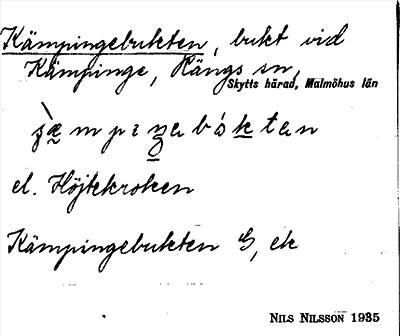 Kämpingebukten, bukt vid
Kämpinge, Kängs sn,
Skytts härad, Malmöhus län
el. Höjtekroken
Kämpingebukten G, ek
NILS NILSSON 1935